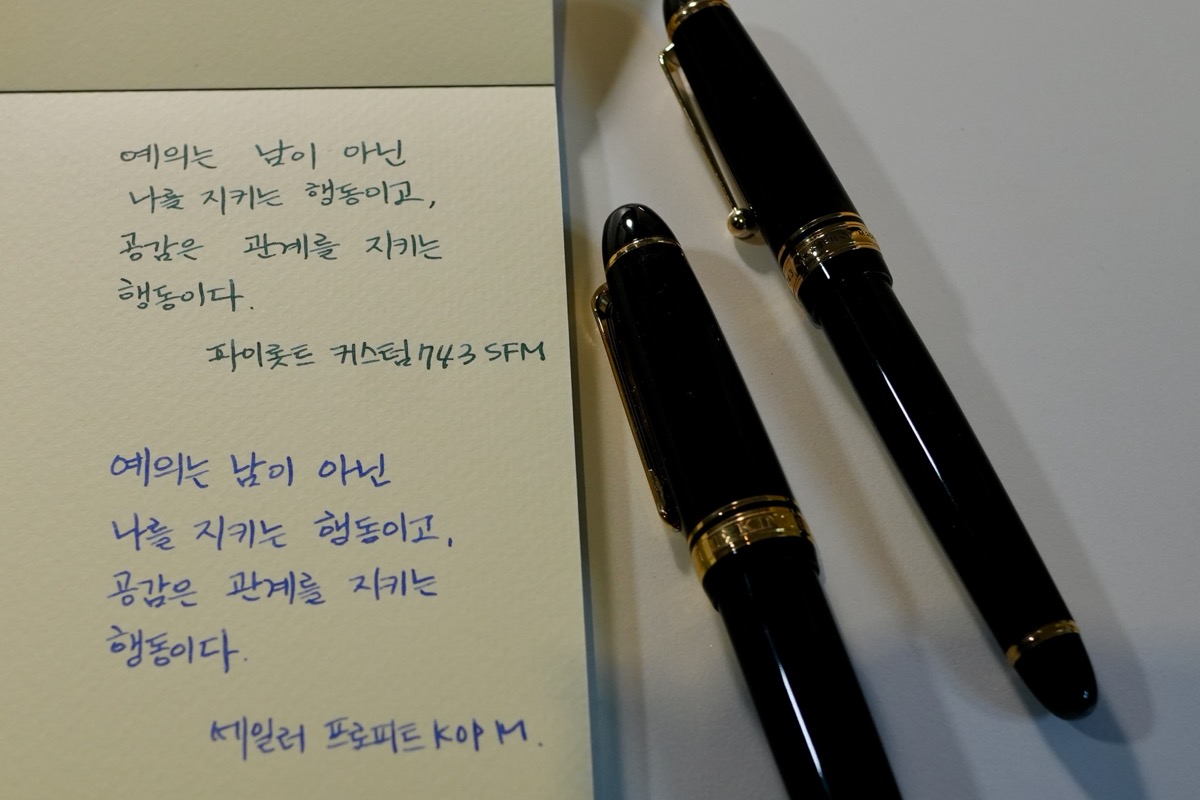 예의는 남이 아닌
나를 지키는 행동이고,
공감은 관계를 지키는
행동이다.
파이롯트 커스텀 743 SFM
예의는 남이 아닌
나를 지키는 행동이고,
공감은 관계를 지키는
행동이다.
세일러 프로피트 KOP M.